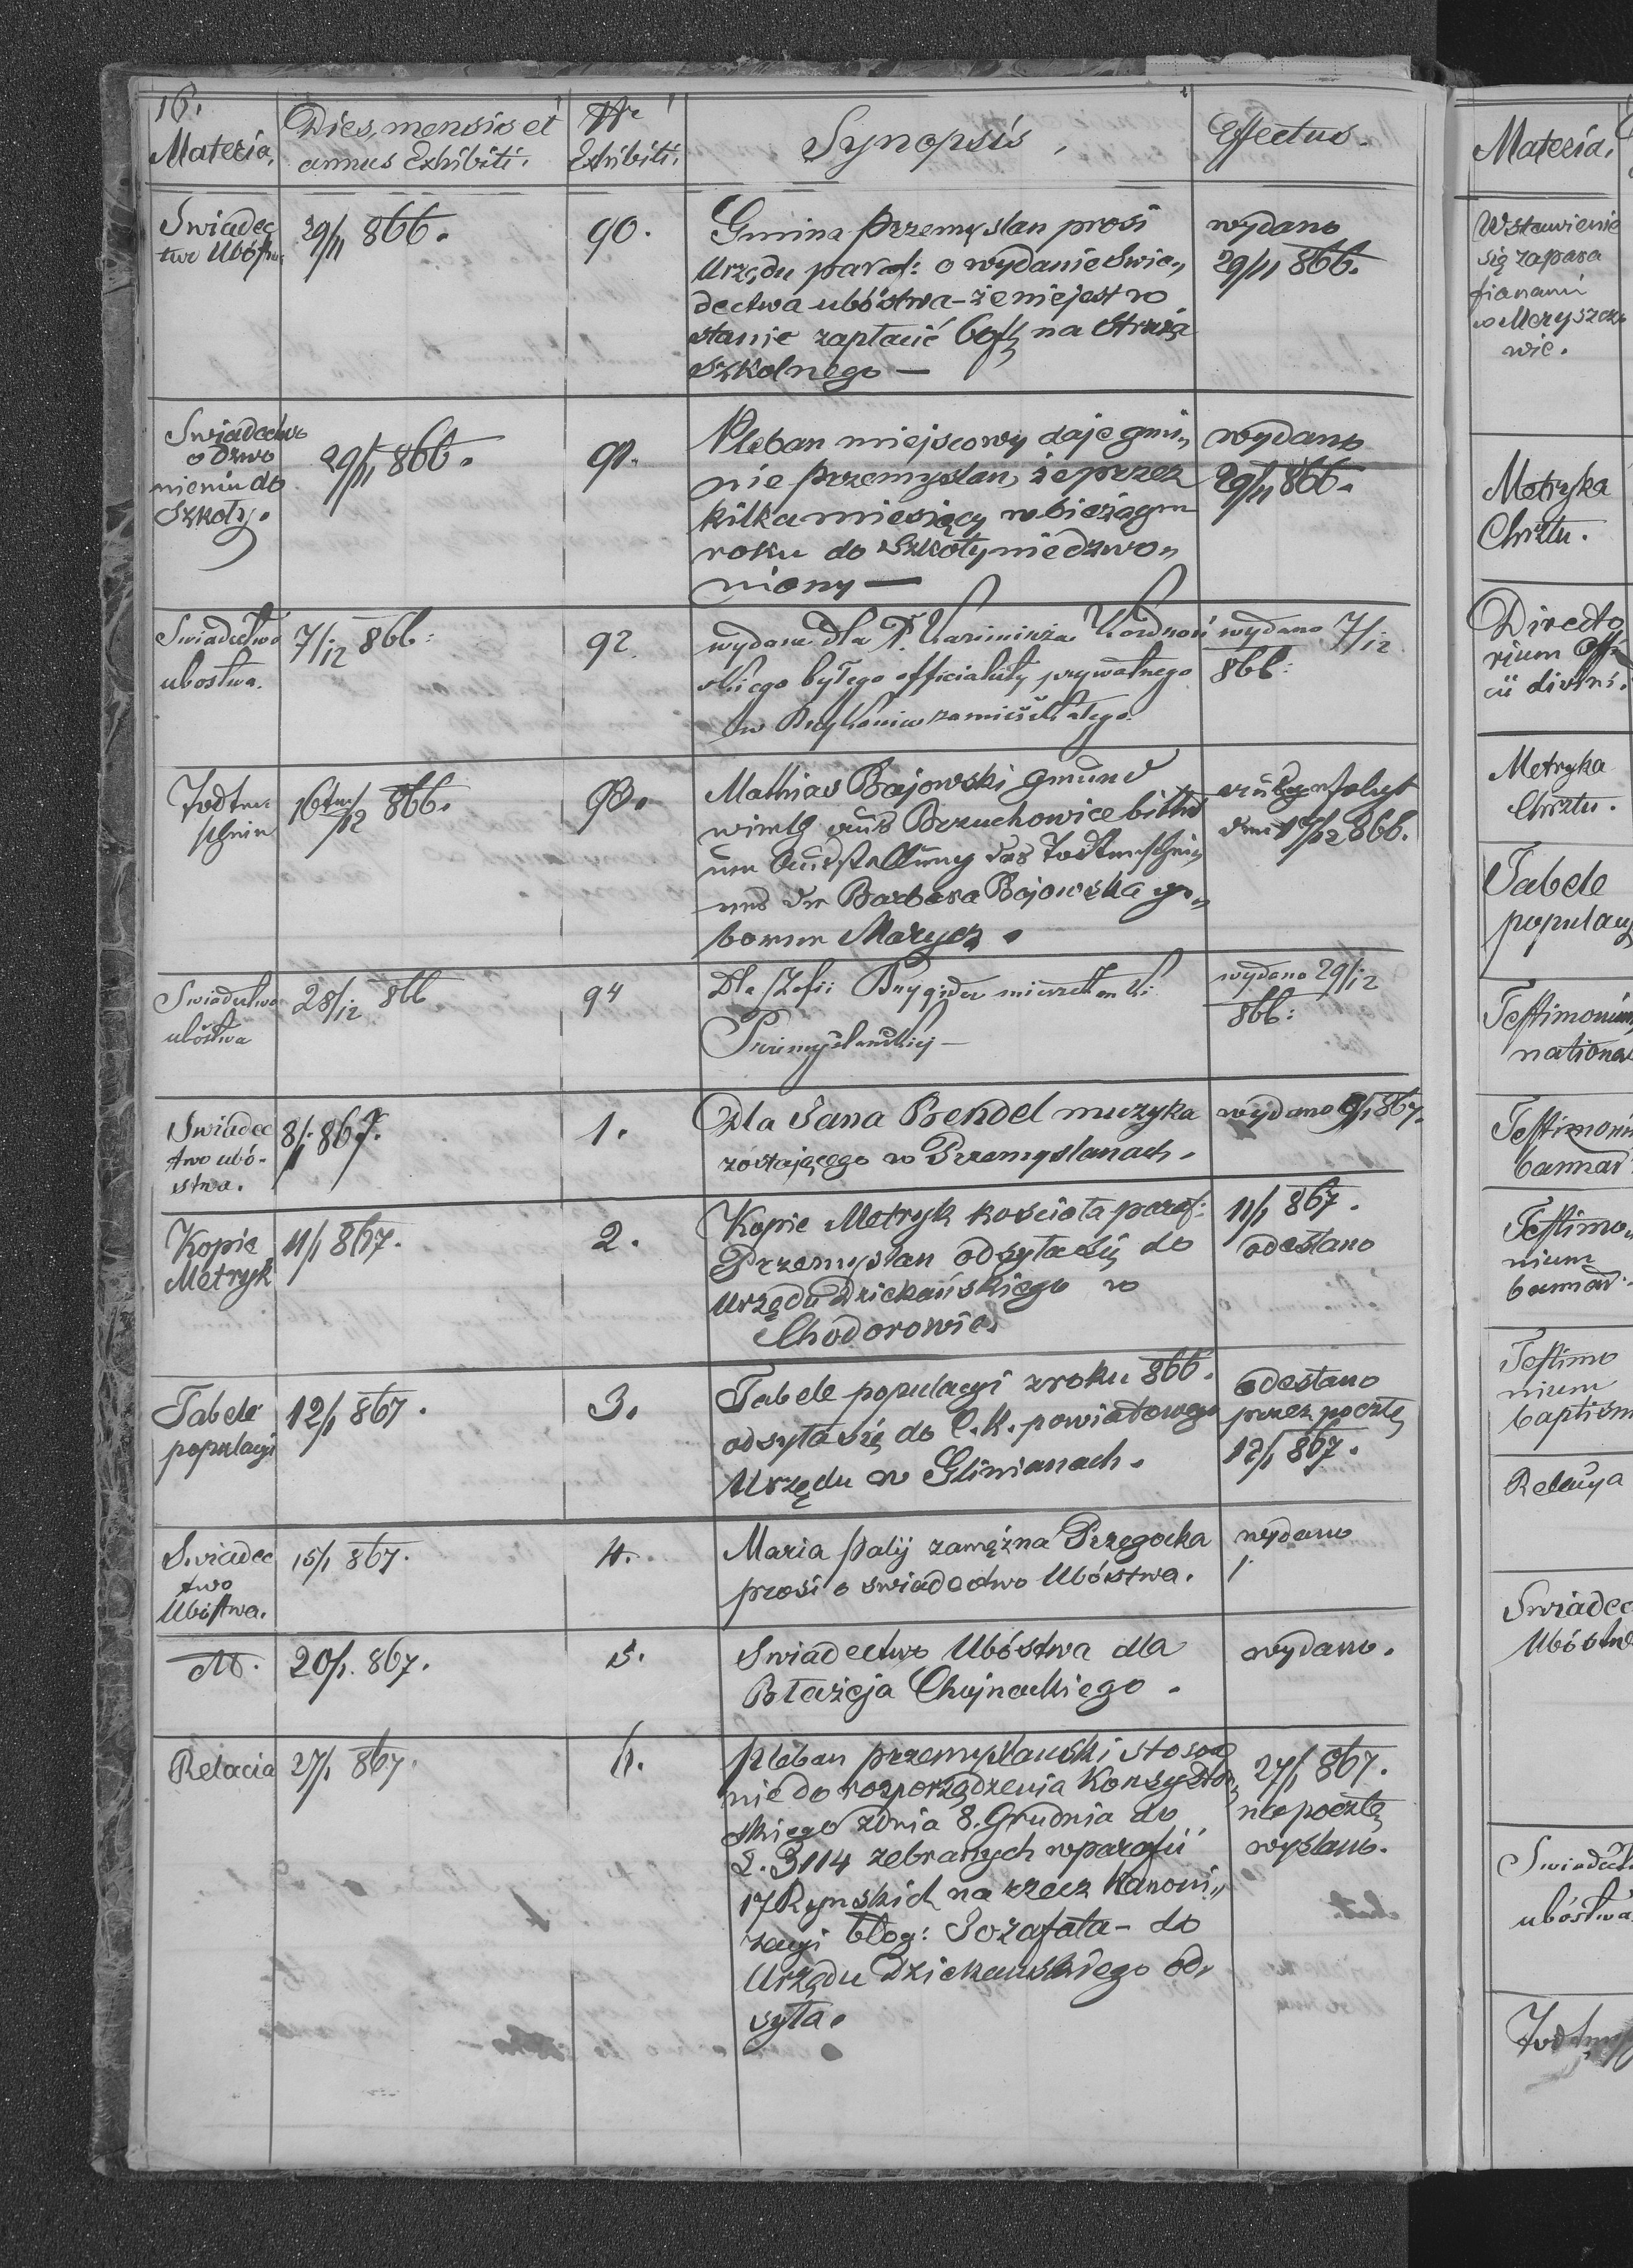 16.
Materia.
Dies, mensis et
annus Exhibiti.
Nr
Exhibiti.
Synopsis.
Effectus.
Swiadec
two Ubóstw:
29/11 866.
90.
Gmina Przemyslan prosi
Urzędu paraf: o wydanie Swia„
dectwa ubóstwa – że nie jest w
stanie zapłacić 60 f na Stróża
szkolnego —
wydano
29/11 866.
Swiadectwo
o dzwo
nieniu do
Szkoły.
29/11 866.
91.
Pleban miejscowy daje gmi„
nie Przemyslan, że przez
kilka miesięcy w bieżącym
roku do Szkoły nie dzwo„
niony —
wydano
29/11 866.
Swiadectwo
ubostwa.
7/12 866:
92.
wydane dla P. Kazimirza
skiego byłego officialisty prywatnego
w zamieszkałego.
wydano 7/12
866:
Todten
schein
16 866.
93.
Mathias Bajowski Gmund
wirth aus Brzuchowice bittet
um Ausstellung des Todtenschei„
nes der Barbara Bajowska ge„
borenen Marycz.
ausgefolgt
den 866.
Swiadectwo
ubóstwa
28/12 866
94
Dla Zofii mieszkanki
Przemyślańskiéj —
wydano 29/12
866:
Swiadec
two ubó-
stwa.
8/1 867.
1.
Dla Jana Prendel muzyka
zostającego w Przemyslanach.
wydano 9/1 867.
Kopie
Metryk
11/1 867.
2.
Kopie Metryk kosciola paraf:
Przemyslan odsyla się do
Urzędu Dziekańskiego w
Chodorowie.
11/1 867.
odeslano
Tabele
populacyi
12/1 867.
3.
Tabele populacyi z roku 866.
odsyla się do C. K. powiatowego
Urzędu w Glinianach.
odeslano
przez pocztę
12/1 867.
Swiadec
two
Ubóstwa.
15/1 867.
4.
Maria Palij zamężna Przegocka
prosi o swiadectwo Ubóstwa.
wydano
20/1. 867.
5.
Swiadectwo Ubóstwa dla
Błażeja Chojnackiego.
wydano.
Relacia
27/1 867.
6.
Pleban przemyslański stosow
nie do rozporządzenia Konsystor„
skiego z dnia 8. Grudnia do
L. 3114 zebranych w parafii
17 Rynskich na rzecz Kanoni„
zacyi błog: Jozafata – do
Urzędu Dziekanskiego od„
syła.
27/1 867.
na pocztę
wyslano.
Materia.
Wstawienie
się za para
fianami
w Meryszczo
wie.
Metryka
Chrztu.
Directo
rium Offi
cii divini.
Metryka
Chrztu.
Tabele
populacy
Testimonium
Testimoni
Testimo„
nium
Testimo
nium
baptism
Relacya
Swiadec
Ubóstw
Swiadect
ubóstwa